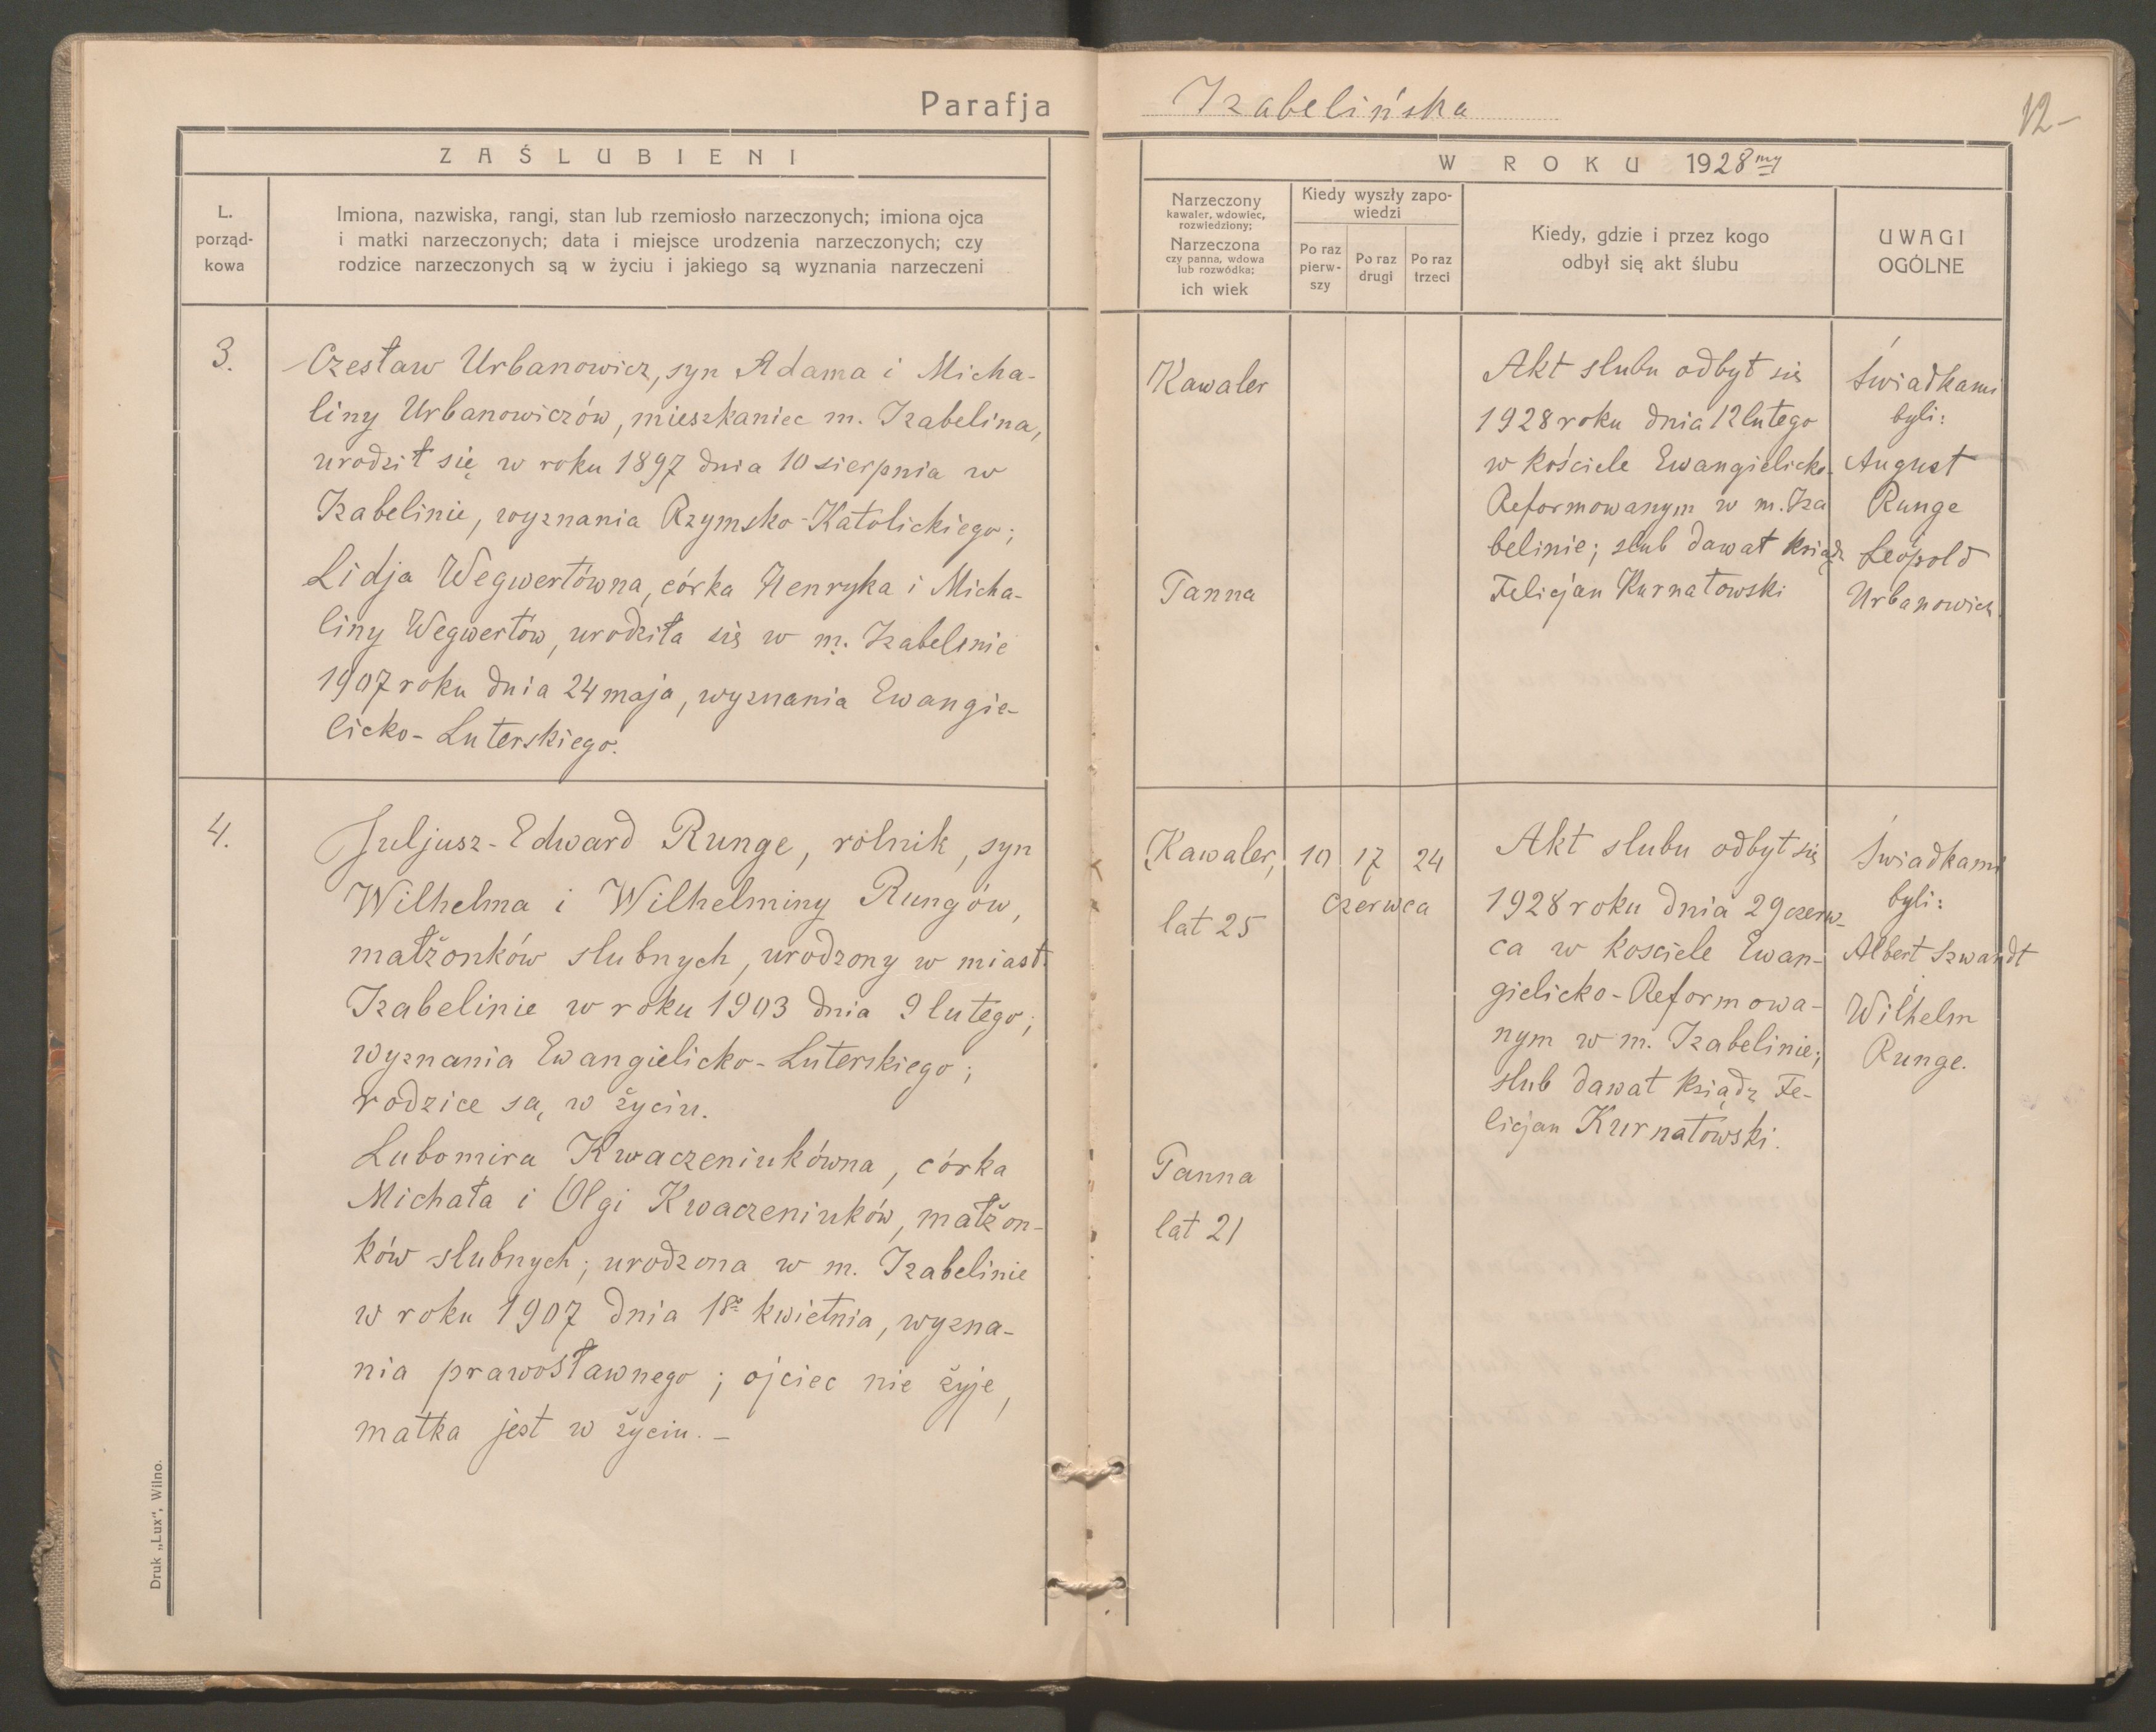 Parafja Izabelińska
12-
ZAŚLUBIENI
W ROKU 1928my
L.
porząd-
kowa
Imiona, nazwiska, rangi, stan lub rzemiosło narzeczonych; imiona ojca
i matki narzeczonych; data i miejsce urodzenia narzeczonych; czy
rodzice narzeczonych są w życiu i jakiego są wyznania narzeczeni
Narzeczony
kawaler, wdowiec,
rozwiedziony;
Narzeczona
czy panna, wdowa
lub rozwódka;
ich wiek
Kiedy wyszły zapo-
wiedzi
Po raz
pierw-
szy
Po raz
drugi
Po raz
trzeci
Kiedy, gdzie i przez kogo
odbył się akt ślubu
UWAGI
OGÓLNE
3.
Czesław Urbanowicz, syn Adama i Micha-
liny Urbanowiczów, mieszkaniec m. Izabelina,
urodził się w roku 1897 dnia 10 sierpnia w
Izabelinie, wyznania Rzymsko-Katolickiego;
Lidja Wegwertówna, córka Henryka i Micha-
liny Wegwertów, urodziła się w m. Izabelinie
1907 roku dnia 24 maja, wyznania Ewangie-
licko-Luterskiego.
Kawaler
Panna
Akt slubu odbył się
1928 roku dnia 12 lutego
w kościele Ewangielicko-
Reformowanym w m. Iza
belinie; slub dawał ksiądz
Felicjan Kurnatowski
Świadkami
byli:
August
Runge
Leopold
Urbanowicz.
4.
Juljusz-Edward Runge, rolnik, syn
Wilhelma i Wilhelminy Rungów,
małżonków slubnych, urodzony w miast.
Izabelinie w roku 1903 dnia 9 lutego;
wyznania Ewangielicko-Luterskiego;
rodzice są w życiu.
Lubomira Kwaczeniukówna, córka
Michała i Olgi Kwaczeniuków, małżon-
ków slubnych; urodzona w m. Izabelinie
w roku 1907 dnia 18go kwietnia, wyzna-
nia prawosławnego; ojciec nie żyje,
matka jest w życiu.-
Kawaler,
lat 25
Panna
lat 21
10 17 24
czerwca
Akt slubu odbył się
1928 roku dnia 29 czerw-
ca w kosciele Ewan-
gielicko-Reformowa-
nym w m. Izabelinie;
slub dawał ksiądz Fe-
licjan Kurnatowski.
Świadkami
byli:
Albert Szwandt
i
Wilhelm
Runge.
Druk „Lux", Wilno.